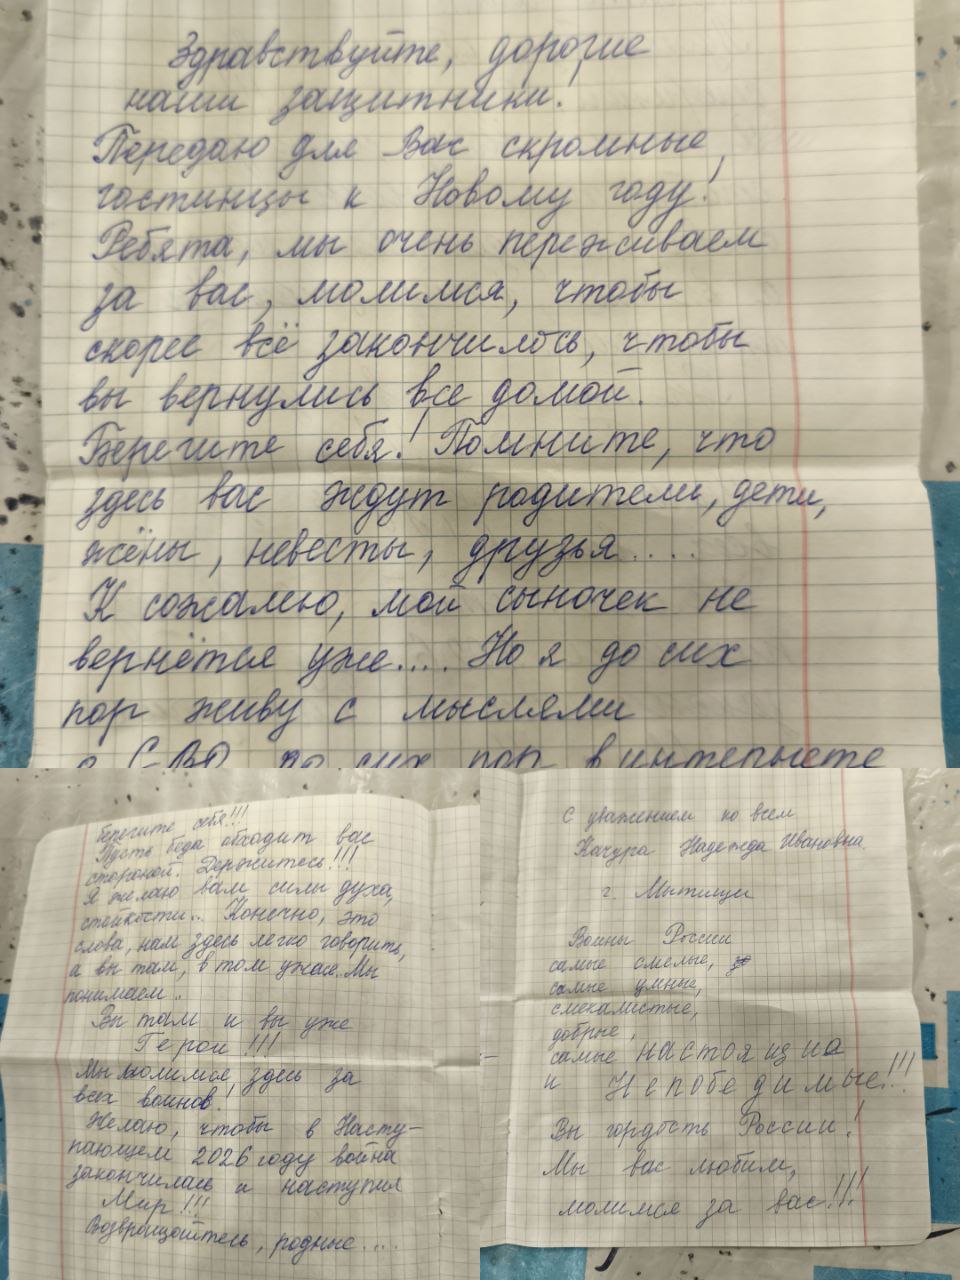 Здравствуйте, дорогие
наши защитники!
Передаю для Вас скромные
гостинцы к Новому году!
Ребята, мы очень переживаем
за вас, молимся, чтобы
скорее всё закончилось, чтобы
вы вернулись все домой.
Берегите себя! Помните, что
здесь вас ждут родители, дети,
жёны, невесты, друзья....
К сожалению, мой сыночек не
вернётся уже.... Но я до сих
пор живу с мыслями
о СВО, до сих пор в интернете
берегите себя!!!
Пусть беда обходит вас
стороной. Держитесь!!!
Я желаю вам силы духа,
стойкости... Конечно, это
слова, нам здесь легко говорить,
а вы там, в том ужасе. Мы
понимаем..
Вы там и вы уже
Герои!!!
Мы молимся здесь за
всех воинов!
Желаю, чтобы в Насту-
пающем 2026 году война
закончилась и наступил
Мир!!!
Возвращайтесь, родные....
С уважением ко всем
Качура Надежда Ивановна.
г. Мытищи
Воины России
самые смелые,
самые умные,
смекалистые,
добрые,
самые настоящие
и Непобедимые!!!
Вы гордость России!
Мы вас любим,
молимся за вас!!!